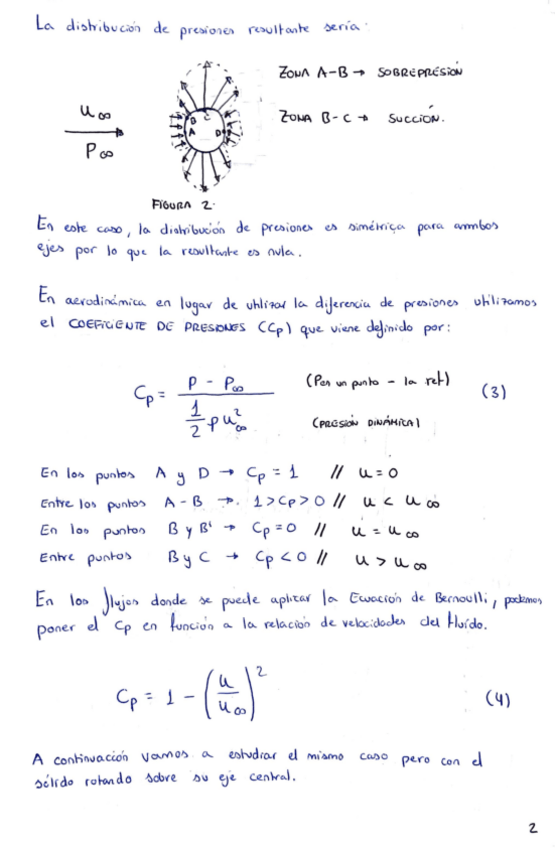 La distribución de presiones resultante sería:
ZONA A-B → SOBREPRESIÓN
u∞
P∞
B C
A D
ZONA B-C → SUCCIÓN.
FIGURA 2.
En este caso, la distribución de presiones es simétrica para ambos
ejes por lo que la resultante es nula.
En aerodinámica en lugar de utilizar la diferencia de presiones utilizamos
el COEFICIENTE DE PRESIONES (Cp) que viene definido por:
Cp = (P - P∞) / (1/2 ρ u∞²) (P en un punto - la ref) (3)
(PRESIÓN DINÁMICA)
En los puntos A y D → Cp = 1 // u = 0
Entre los puntos A - B → 1 > Cp > 0 // u < u∞
En los puntos B y B' → Cp = 0 // u = u∞
Entre puntos B y C → Cp < 0 // u > u∞
En los flujos donde se puede aplicar la Ecuación de Bernoulli, podemos
poner el Cp en función a la relación de velocidades del fluído.
Cp = 1 - (u/u∞)² (4)
A continuación vamos a estudiar el mismo caso pero con el
sólido rotando sobre su eje central.
2